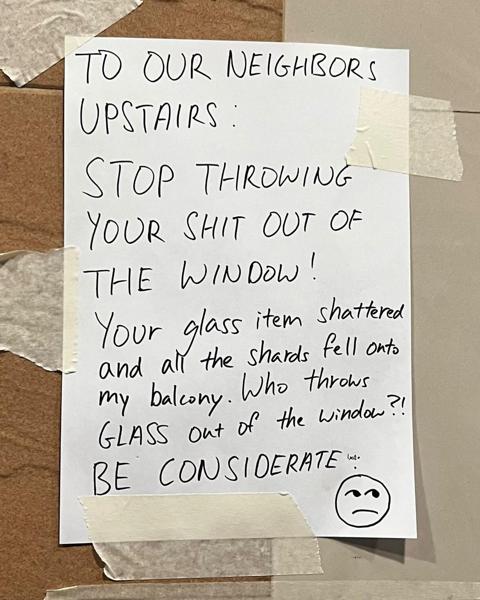 TO OUR NEIGHBORS
UPSTAIRS:
STOP THROWING
YOUR SHIT OUT OF
THE WINDOW!
Your glass item shattered
and all the shards fell onto
my balcony. Who throws
GLASS out of the window?!
BE CONSIDERATE